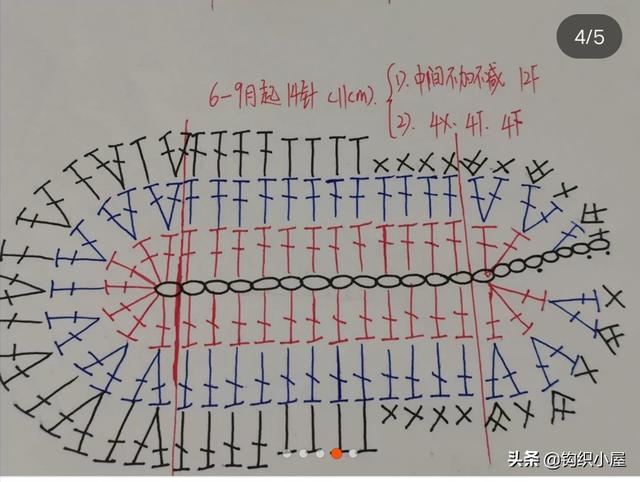 4/5
6-9月起14针 (11cm).
(1). 中间不加不减 12F
(2). 4X. 4T. 4F
头条 @钩织小屋